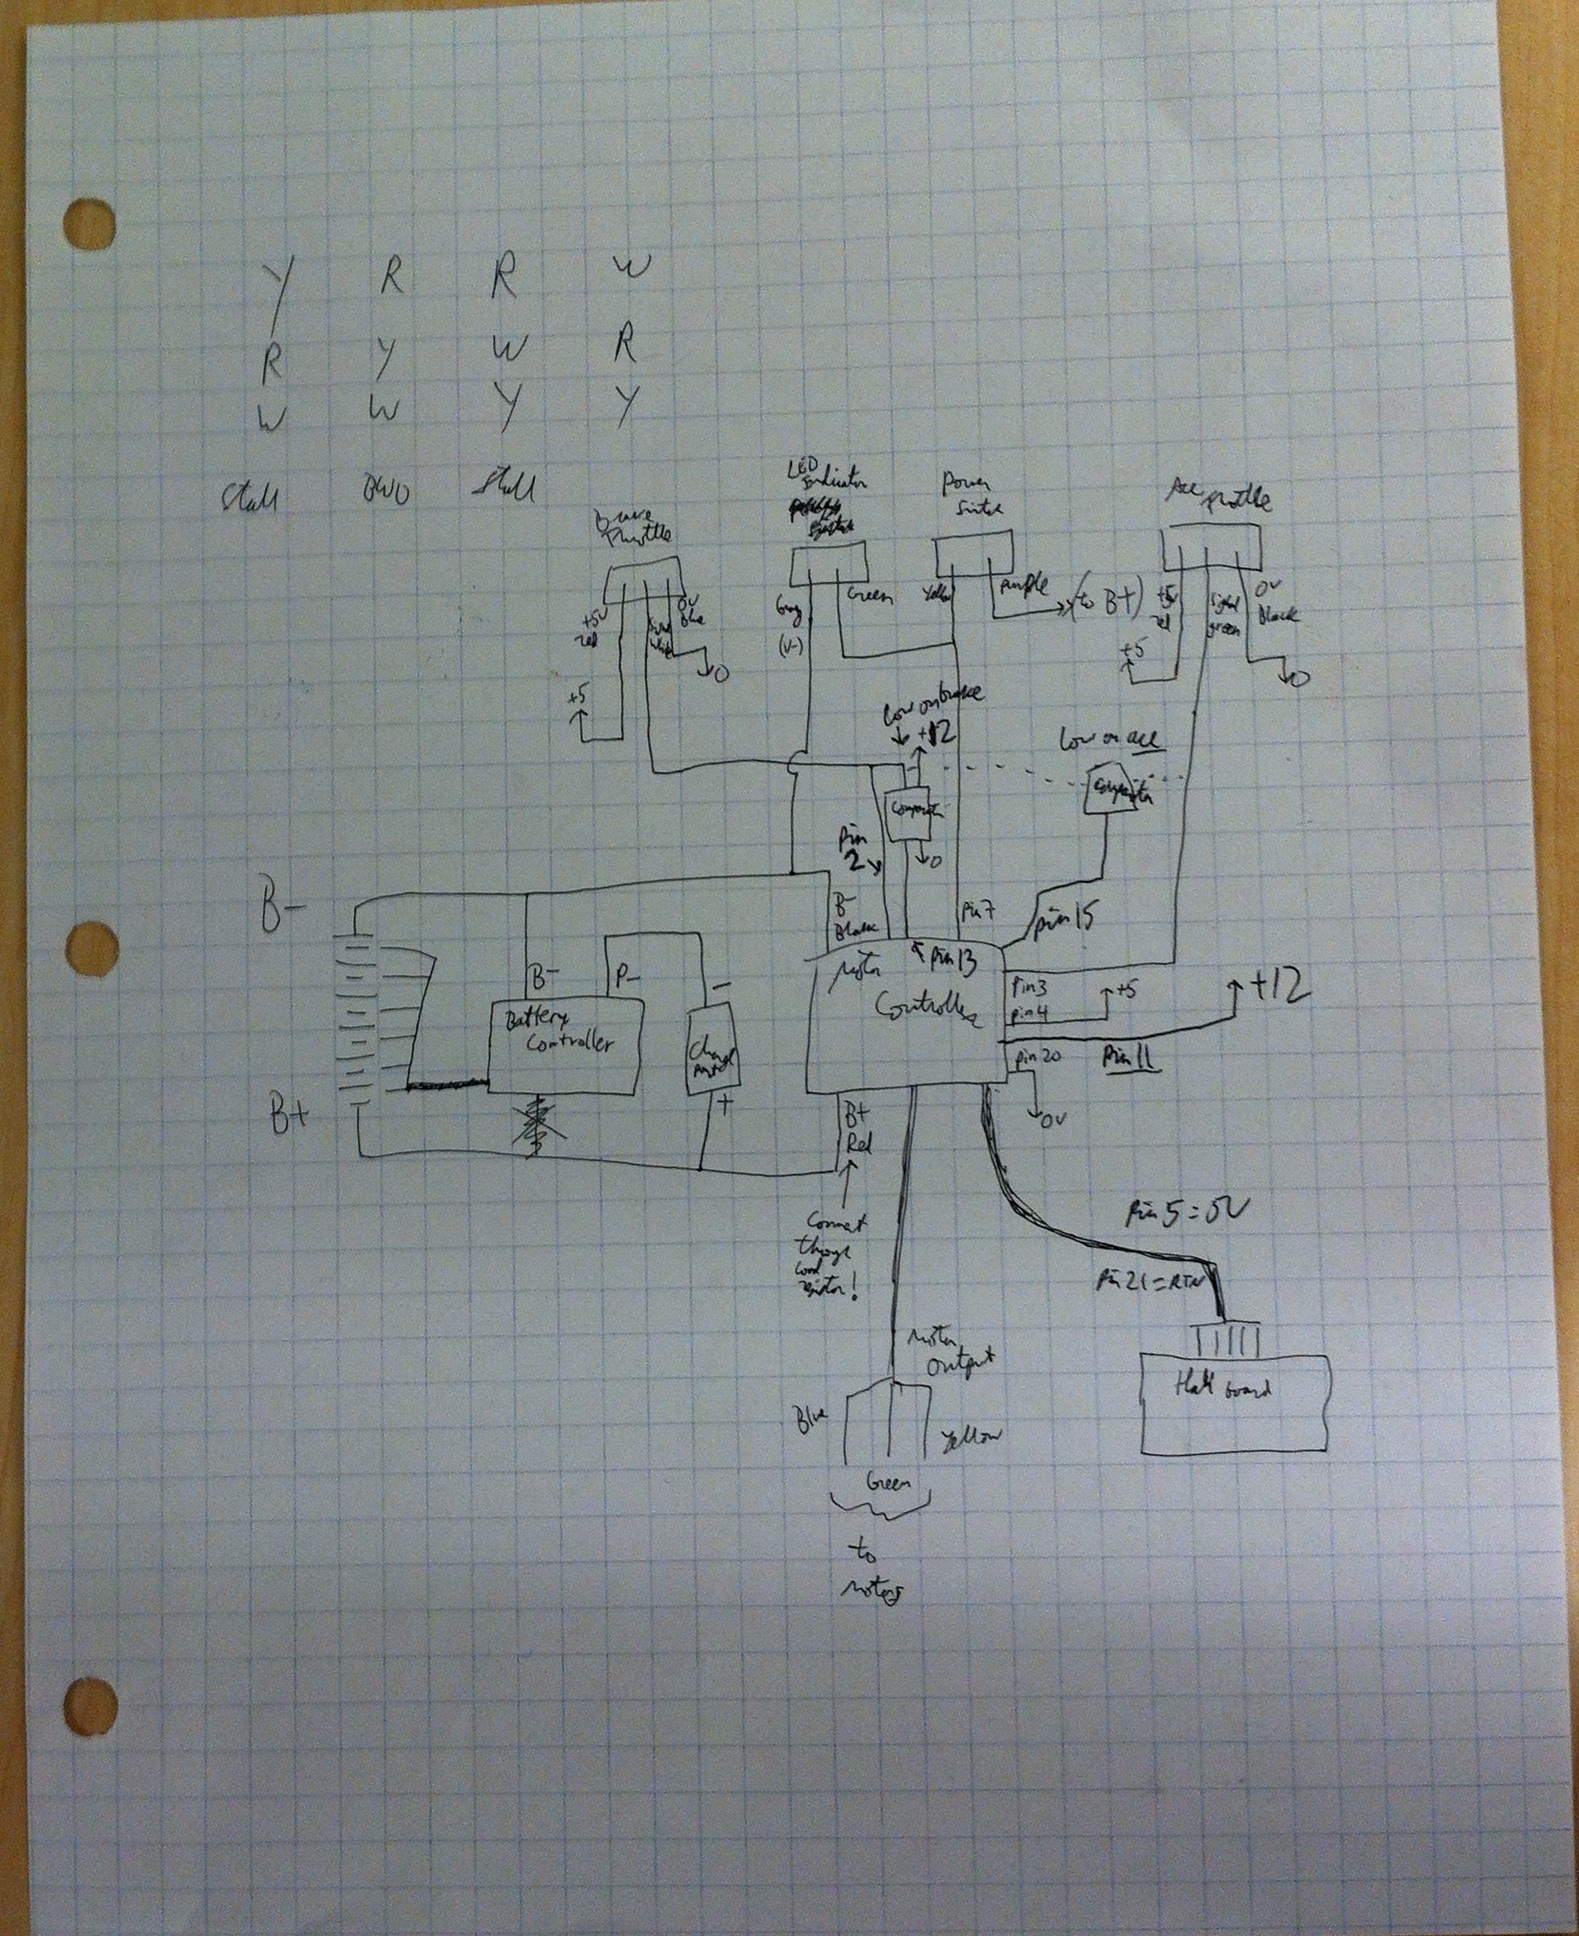 Y R R W
R Y W R
W W Y Y
Stall BWD Stall
Throttle
LED
Indicator
Power
Acc
+5V
red
0V
Blue
Gray
(V-)
Green
Yellow
Purple
(to B+)
+5V
red
Signal
green
0V
Black
+5
0
+5
0
Low on brake
+12
Low on acc
Pin
2
0
B-
B-
Black
Pin 7
Pin 15
Pin 13
B-
P-
-
Motor
Controller
Pin 3
Pin 4
+5
+12
Battery
Controller
Pin 20
Pin 11
0V
B+
+
B+
Red
Connect
through
resistor!
Pin 5 = 5V
Pin 21 = RTN
Motor
Output
Hall board
Blue
Yellow
Green
to
Motors